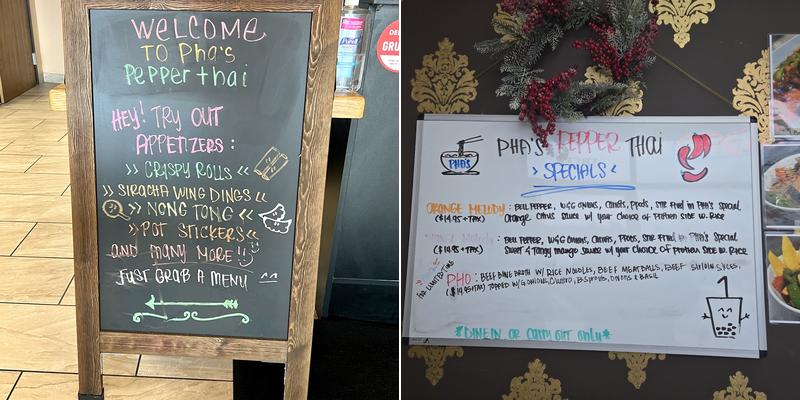 WELCOME
TO Pha's
Pepper thai
HEY! TRY OUT
APPETIZERS :
>> CRISPY ROLLS <<
>> SIRACHA WING DINGS <<
>> NONG TONG <<
> POT STICKERS <<
AND MANY MORE!
JUST GRAB A MENU ^^
PHA'S PEPPER THAI
> SPECIALS <
PHA'S
ORANGE MELODY : BELL PEPPER, WJG ONIONS, CARROTS, PPODS, STIR FRIED IN PHA'S SPECIAL
($14.95 + TAX) Orange Citrus Sauce w/ your choice of Protein side w. Rice
: BELL PEPPER, WJG ONIONS, CARROTS, PPODS, STIR FRIED IN PHA'S SPECIAL
($14.95 + TAX) Sweet & Tangy mango sauce w/ your choice of Protein side w. Rice
FOR LIMITED TIME
PHO : BEEF BONE BROTH W/ RICE NOODLES, BEEF MEATBALLS, BEEF SIRLOIN SLICES,
($14.95+TAX) TOPPED W/ G.ONIONS, CILANTRO, B.SPROUTS, ONIONS & BASIL
*DINE IN OR CARRY OUT only*